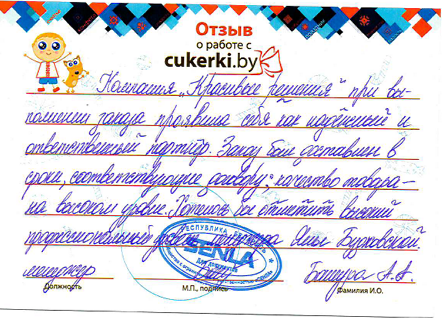 Отзыв
о работе с
cukerki.by
Компания „Красивые решения" при вы-
полнении заказа проявила себя как надёжный и
ответственный партнёр. Заказ был доставлен в
сроки, соответствующие договору; качество товара -
на высоком уровне. Хотелось бы отметить высокий
профессиональный уровень Яны Бузковской.
РЕСПУБЛИКА
SENLA
менеджер
Башура А.А.
Должность
М.П., подпись
Фамилия И.О.